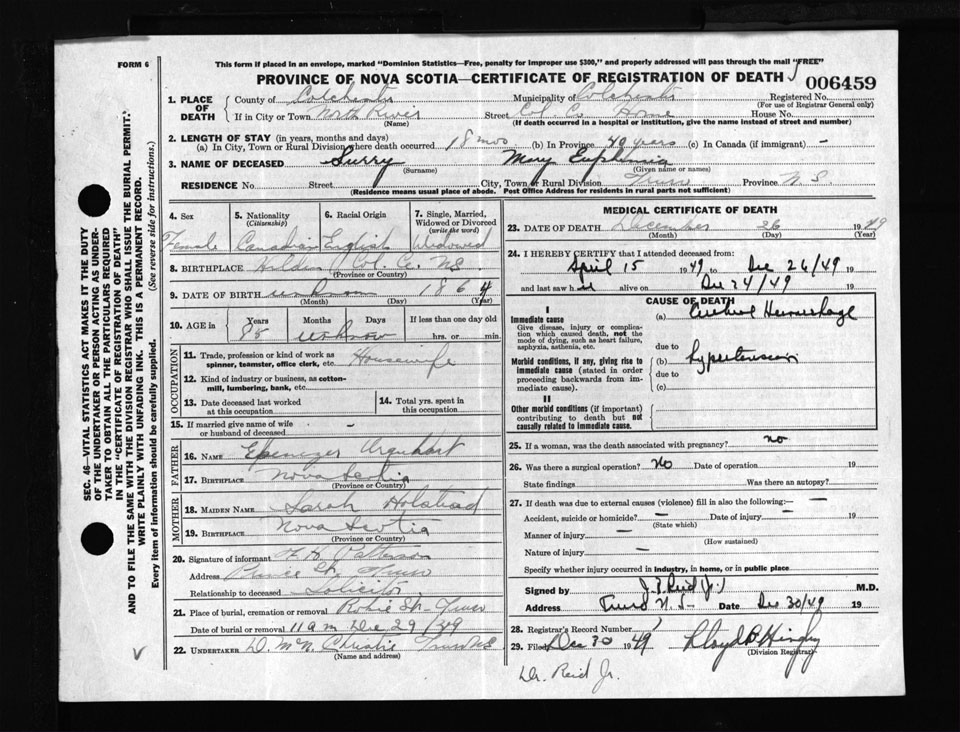 FORM 6
This form if placed in an envelope, marked "Dominion Statistics—Free, penalty for improper use $300," and properly addressed will pass through the mail "FREE"
PROVINCE OF NOVA SCOTIA—CERTIFICATE OF REGISTRATION OF DEATH
006459
1. PLACE OF DEATH
County of Colchester Municipality of Colchester Registered No.
(For use of Registrar General only)
If in City or Town North River Street Col. Co. Home House No.
(Name) (If death occurred in a hospital or institution, give the name instead of street and number)
2. LENGTH OF STAY (in years, months and days)
(a) In City, Town or Rural Division where death occurred 18 mos (b) In Province 40 years (c) In Canada (if immigrant) —
3. NAME OF DECEASED Surry Mary Euphemia
(Surname) (Given name or names)
RESIDENCE No. Street City, Town or Rural Division Truro Province N.S.
(Residence means usual place of abode. Post Office Address for residents in rural parts not sufficient)
4. Sex 5. Nationality (Citizenship) 6. Racial Origin 7. Single, Married, Widowed or Divorced (write the word)
Female Canadian English Widowed
8. BIRTHPLACE Hilden Col. Co. NS
(Province or Country)
9. DATE OF BIRTH unknown 1864
(Month) (Day) (Year)
10. AGE in Years Months Days If less than one day old
85 unknown hrs. or min.
OCCUPATION
11. Trade, profession or kind of work as spinner, teamster, office clerk, etc. Housewife
12. Kind of industry or business, as cotton-mill, lumbering, bank, etc.
13. Date deceased last worked at this occupation
14. Total yrs. spent in this occupation
15. If married give name of wife or husband of deceased —
FATHER
16. Name Ebenezer Urquhart
17. Birthplace Nova Scotia
(Province or Country)
MOTHER
18. MAIDEN NAME Sarah Holstead
19. BIRTHPLACE Nova Scotia
(Province or Country)
20. Signature of informant Patterson
Address Prince St. Truro
Relationship to deceased Solicitor
21. Place of burial, cremation or removal Robie St - Truro
Date of burial or removal 11 am Dec 29/49
22. UNDERTAKER D. McN. Christie Truro NS
(Name and address)
MEDICAL CERTIFICATE OF DEATH
23. DATE OF DEATH December 26 1949
(Month) (Day) (Year)
24. I HEREBY CERTIFY that I attended deceased from:
April 15 1949 to Dec 26/49 19
and last saw h alive on Dec 24/49 19
CAUSE OF DEATH
I
Immediate cause
Give disease, injury or complication which caused death, not the mode of dying, such as heart failure, asphyxia, asthenia, etc.
(a) Cerebral Hemorrhage
due to
Morbid conditions, if any, giving rise to immediate cause (stated in order proceeding backwards from immediate cause).
(b) hypertension
due to
(c)
II
Other morbid conditions (if important) contributing to death but not causally related to immediate cause.
25. If a woman, was the death associated with pregnancy? no
26. Was there a surgical operation? No Date of operation 19
State findings Was there an autopsy?
27. If death was due to external causes (violence) fill in also the following:— —
Accident, suicide or homicide? — Date of injury — 19
(State which)
Manner of injury —
(How sustained)
Nature of injury —
Specify whether injury occurred in industry, in home, or in public place
Signed by Reid Jr. M.D.
Address Truro N.S. Date Dec 30/49 19
28. Registrar's Record Number
29. Filed Dec 30 1949 Lloyd
(Division Registrar)
Dr. Reid Jr.
SEC. 46—VITAL STATISTICS ACT MAKES IT THE DUTY
OF THE UNDERTAKER OR PERSON ACTING AS UNDER-
TAKER TO OBTAIN ALL THE PARTICULARS REQUIRED
IN THE "CERTIFICATE OF REGISTRATION OF DEATH"
AND TO FILE THE SAME WITH THE DIVISION REGISTRAR WHO SHALL ISSUE THE BURIAL PERMIT.
WRITE PLAINLY WITH UNFADING INK. THIS IS A PERMANENT RECORD.
Every item of information should be carefully supplied. (See reverse side for instructions.)